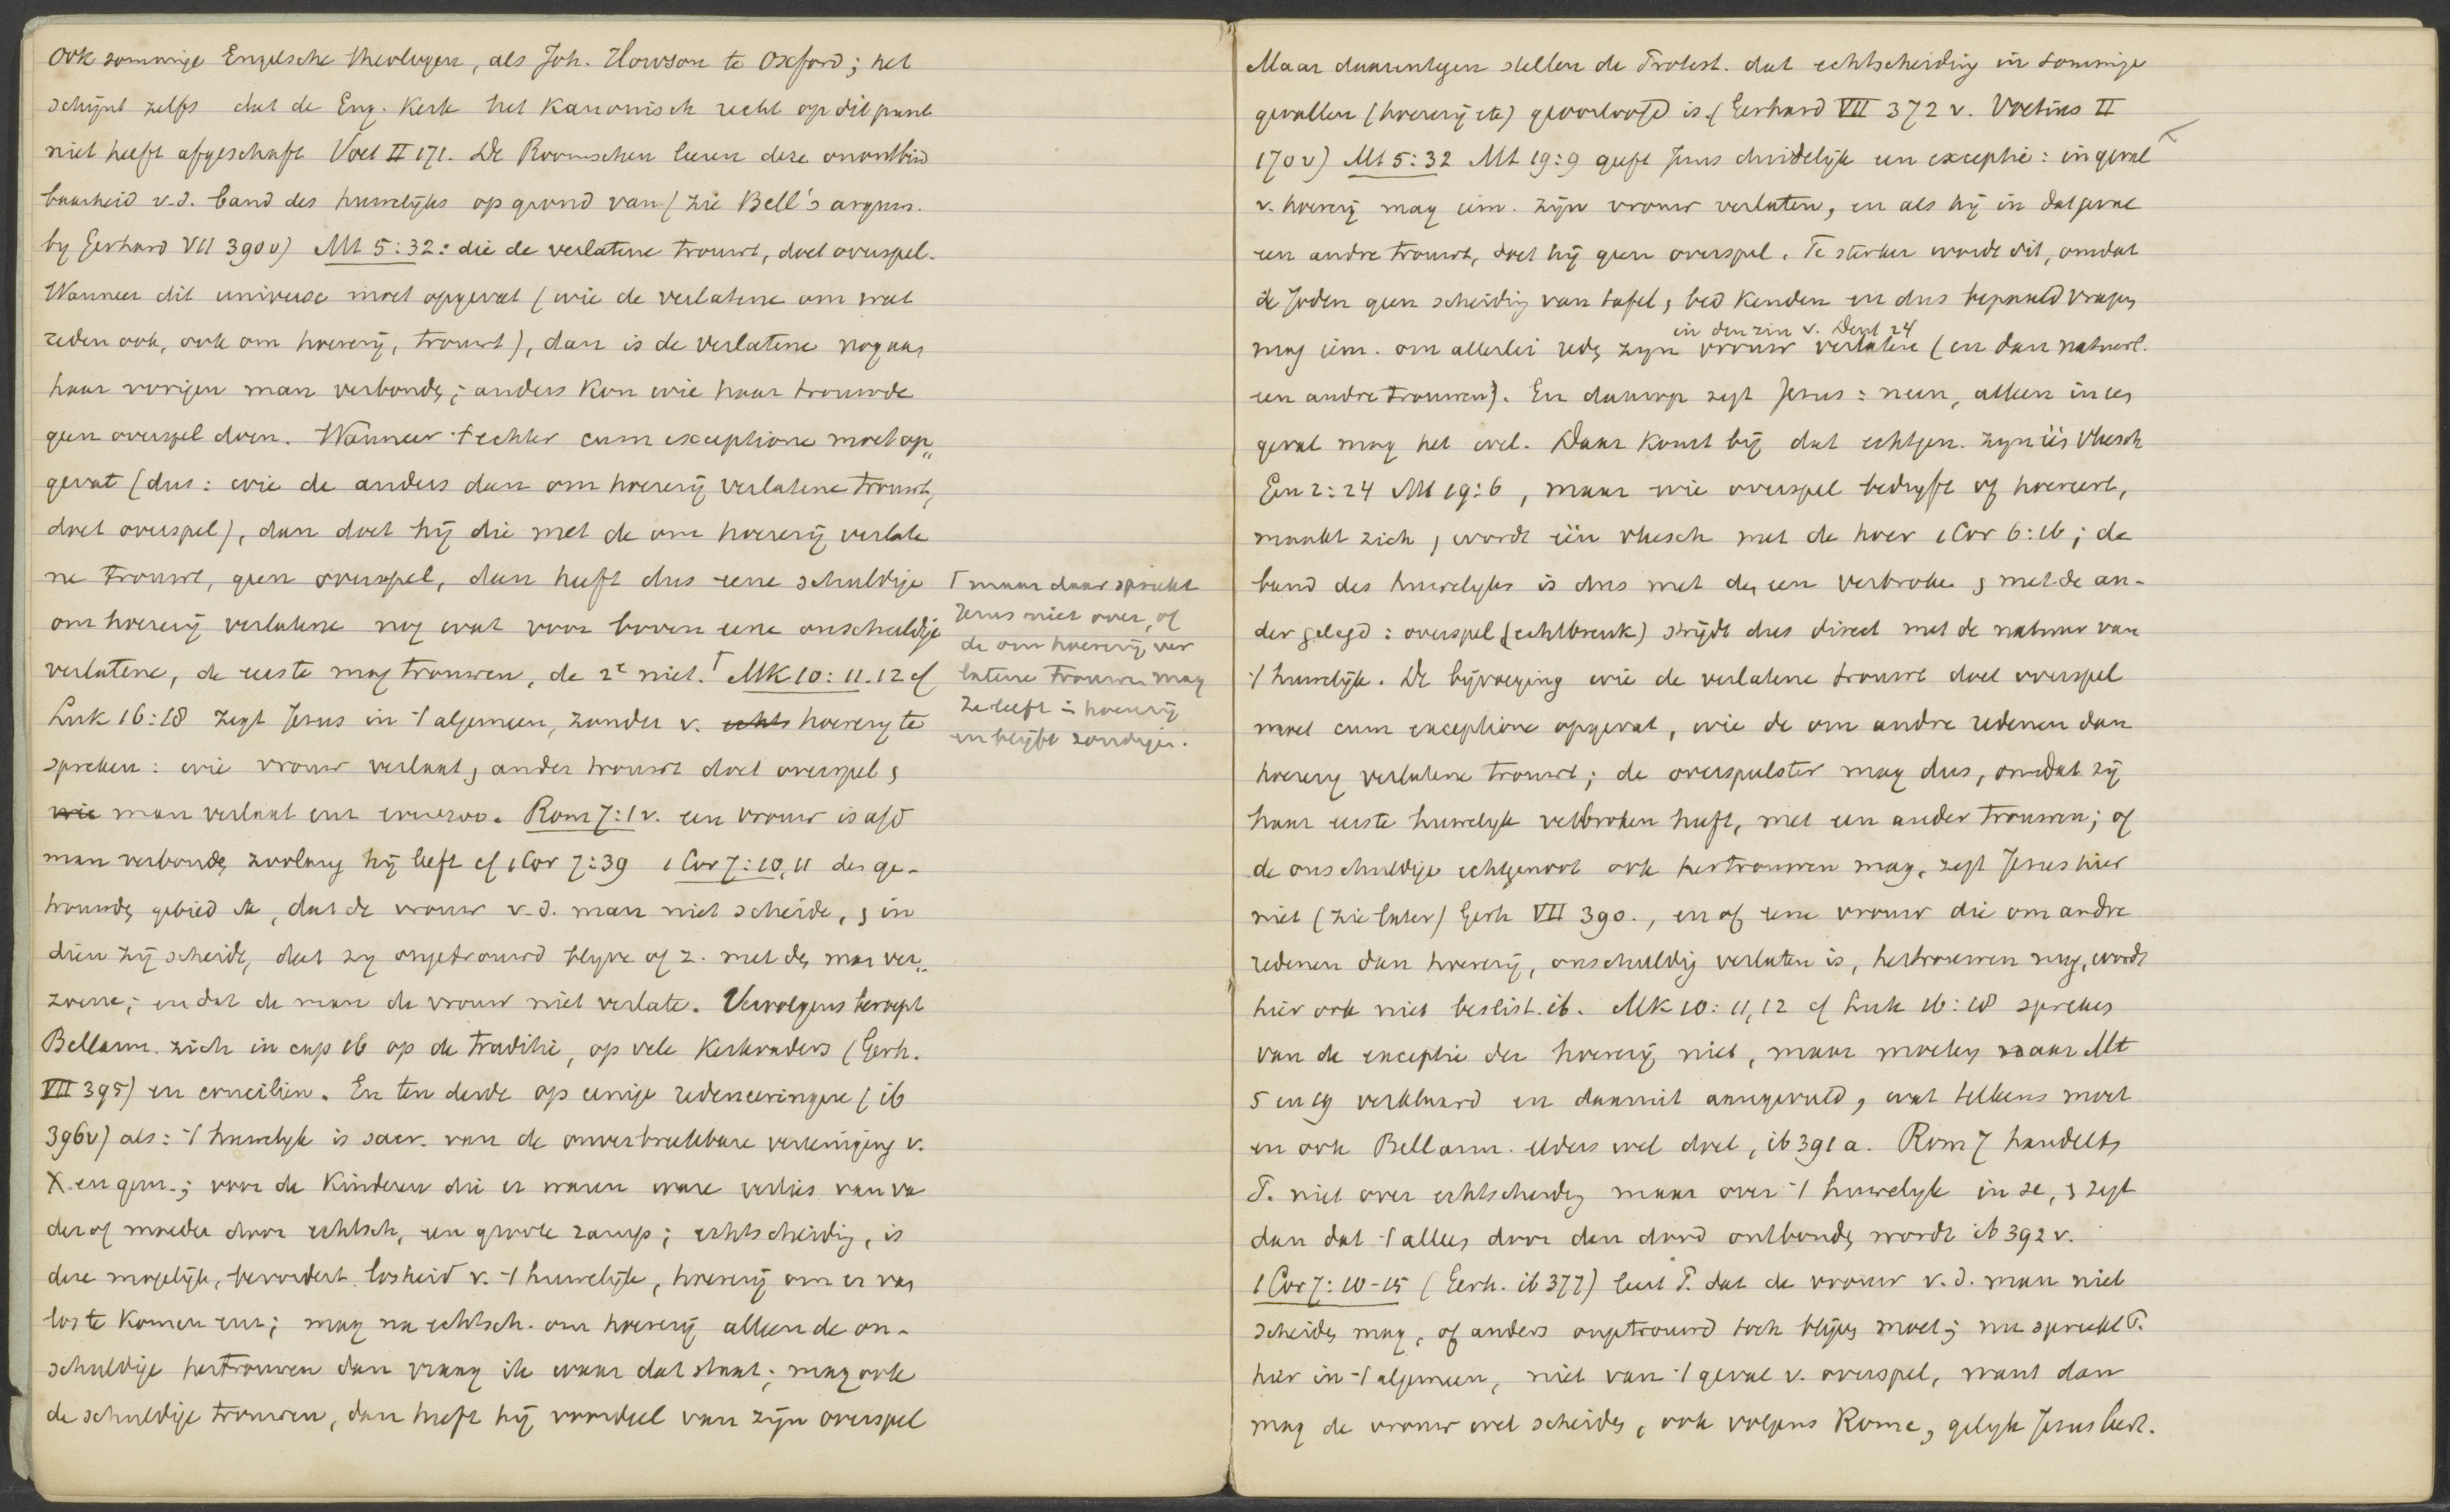 ook sommige Engelsche theologen, als Joh. Howson te Oxford; het
schijnt zelfs dat de Eng. Kerk het Kanonisch recht op dit punt
niet heeft afgeschaft Voet II 171. De Roomschen leeren deze onontbind
baarheid v.d. band des huwelijks op grond van (zie Bell's argum.
by Gerhard VII 390v) Mt 5:32: die de verlatene trouwt, doet overspel.
Wanneer dit universe moet opgevat (wie de verlatene om wat
reden ook, ook om hoererij, trouwt), dan is de verlatene nog aan
haar vorigen man verbonden; anders kon wie haar trouwde
geen overspel doen. Wanneer 't echter cum exceptione moet op„
gevat (dus: wie de anders dan om hoererij verlatene trouwt,
doet overspel), dan doet hij die met de om hoererij verlate
ne trouwt, geen overspel, dan heeft dus eene schuldige
om hoererij verlatene nog wat voor boven eene onschuldige
verlatene, de eerste mag trouwen, de 2e niet.⌈ Mk 10:11.12 cf
Luk 16:18 zegt Jesus in 't algemeen, zonder v. echts hoerery te
spreken: wie vrouw verlaat, ander trouwt doet overspel,
wie man verlaat enz evenzoo. Rom 7:1v. een vrouw is a/d
man verbonden zoolang hij leeft cf 1Cor 7:39 1Cor 7:10,11 den ge-
trouwden gebied ik, dat de vrouw v.d. man niet scheide, en in
dien zij scheidt, dat zy ongetrouwd blyve of z. met den man ver„
zoene; en dat de man de vrouw niet verlate. Vervolgens beroept
Bellarm. zich in cap 16 op de traditie, op vele Kerkvaders (Gerh.
VII 395) en conciliën. En ten derde op eenige redeneeringen (ib
396v) als: 't huwelyk is sacr. van de onverbreekbare vereeniging v.
X en gem.; voor de Kinderen die er waren ware verlies van va
der of moeder door echtsch. een groote ramp; echtscheiding, is
deze mogelijk, bevordert losheid v. 't huwelijk, hoererij om er van
los te komen enz; mag na echtsch. om hoererij alleen de on-
schuldige hertrouwen dan vraag ik waar dat staat; mag ook
de schuldige trouwen, dan heeft hij voordeel van zijn overspel
⌈ maar daar spreekt
Jesus niet over, of
de om hoererij ver
latene trouwen mag
Ze leeft in hoererij
en blijft zondigen.
Maar daarentegen stellen de Protest. dat echtscheiding in sommige
gevallen (hoererij etc) geoorloofd is. (Gerhard VII 372 v. Voetius II
170v) Mt 5:32 Mt 19:9 geeft Jesus duidelijk een exceptie: in geval
v. hoererij mag iem. zijn vrouw verlaten, en als hij in dat geval
een andre trouwt, doet hij geen overspel. Te sterker wordt dit, omdat
de Joden geen scheiding van tafel en bed kenden en dus bepaald vragen
in den zin v. Deut 24
mag iem. om allerlei reden zyn vrouw verlaten (en dan natuurl.
een andre trouwen). En daarop zegt Jesus: neen, alleen in een
geval mag het wel. Daar komt bij dat echtgen. zyn één vleesch
Gen 2:24 Mt 19:6, maar wie overspel bedryft of hoereert,
maakt zich, wordt één vleesch met de hoer 1Cor 6:16; de
band des huwelyks is dus met den een verbroken en met de an-
der gelegd: overspel (echtbreuk) strijdt dus direct met de natuur van
't huwelijk. De bijvoeging wie de verlatene trouwt doet overspel
moet cum exceptione opgevat, wie de om andre redenen dan
hoerery verlatene trouwt; de overspeelster mag dus, omdat zij
haar eerste huwelyk verbroken heeft, met een ander trouwen; of
de onschuldige echtgenoot ook hertrouwen mag, zegt Jesus hier
niet (zie later) Gerh VII 390., en of eene vrouw die om andre
redenen dan hoererij, onschuldig verlaten is, hertrouwen mag, wordt
hier ook niet beslist. ib. Mk 10:11,12 cf Luk 16:18 spreken
van de exceptie der hoererij niet, maar moeten naar Mt
5 en 19 verklaard en daaruit aangevuld, wat telkens moet
en ook Bellarm. elders wel doet, ib 391a. Rom 7 handelt
P. niet over echtscheiding maar over 't huwelyk in se, en zegt
dan dat 't alleen door den dood ontbonden wordt ib 392 v.
1Cor 7:10-15 (Gerh. ib 377) leert P. dat de vrouw v.d. man niet
scheiden mag, of anders ongetrouwd toch blijven moet; nu spreekt P.
hier in 't algemeen, niet van 't geval v. overspel, want dan
mag de vrouw wel scheiden, ook volgens Rome, gelyk Jesus leert.